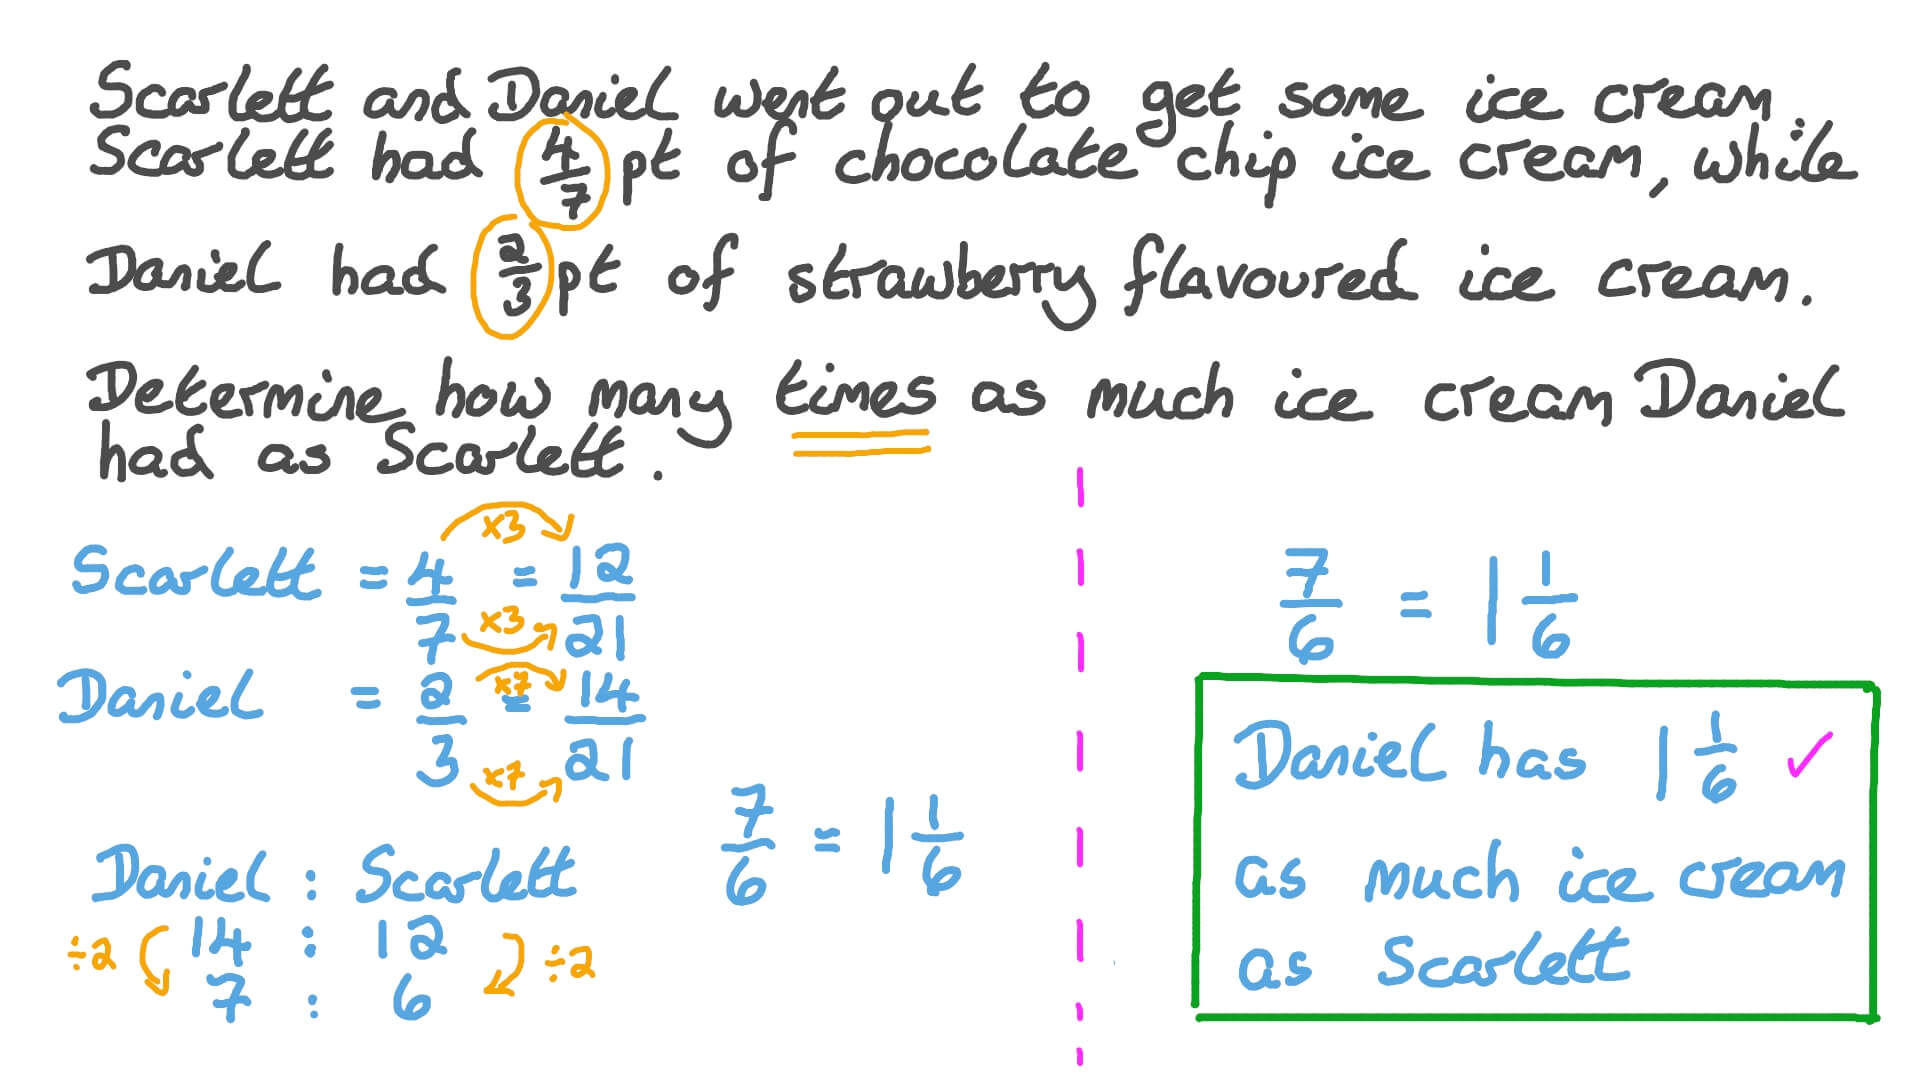 Scarlett and Daniel went out to get some ice cream.
Scarlett had 4/7 pt of chocolate chip ice cream, while
Daniel had 2/3 pt of strawberry flavoured ice cream.
Determine how many times as much ice cream Daniel
had as Scarlett.
×3
Scarlett = 4/7 = 12/21
×3
×7
Daniel = 2/3 = 14/21
×7
Daniel : Scarlett
÷2 14 : 12 ÷2
7 : 6
7/6 = 1 1/6
7/6 = 1 1/6
Daniel has 1 1/6 ✓
as much ice cream
as Scarlett